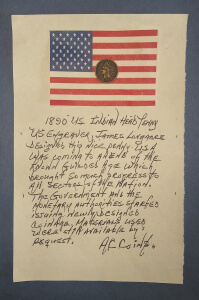 1890 US Indian Head Penny
US Engraver, James Longacre
designed this nice penny. USA
was coming to an end of the
known Guilded Age which
brought so much progress to
all sectors of the nation.
The Government and the
monetary authorities started
issuing newly designed
coinage. Materials used
were available by
request. AC Coins